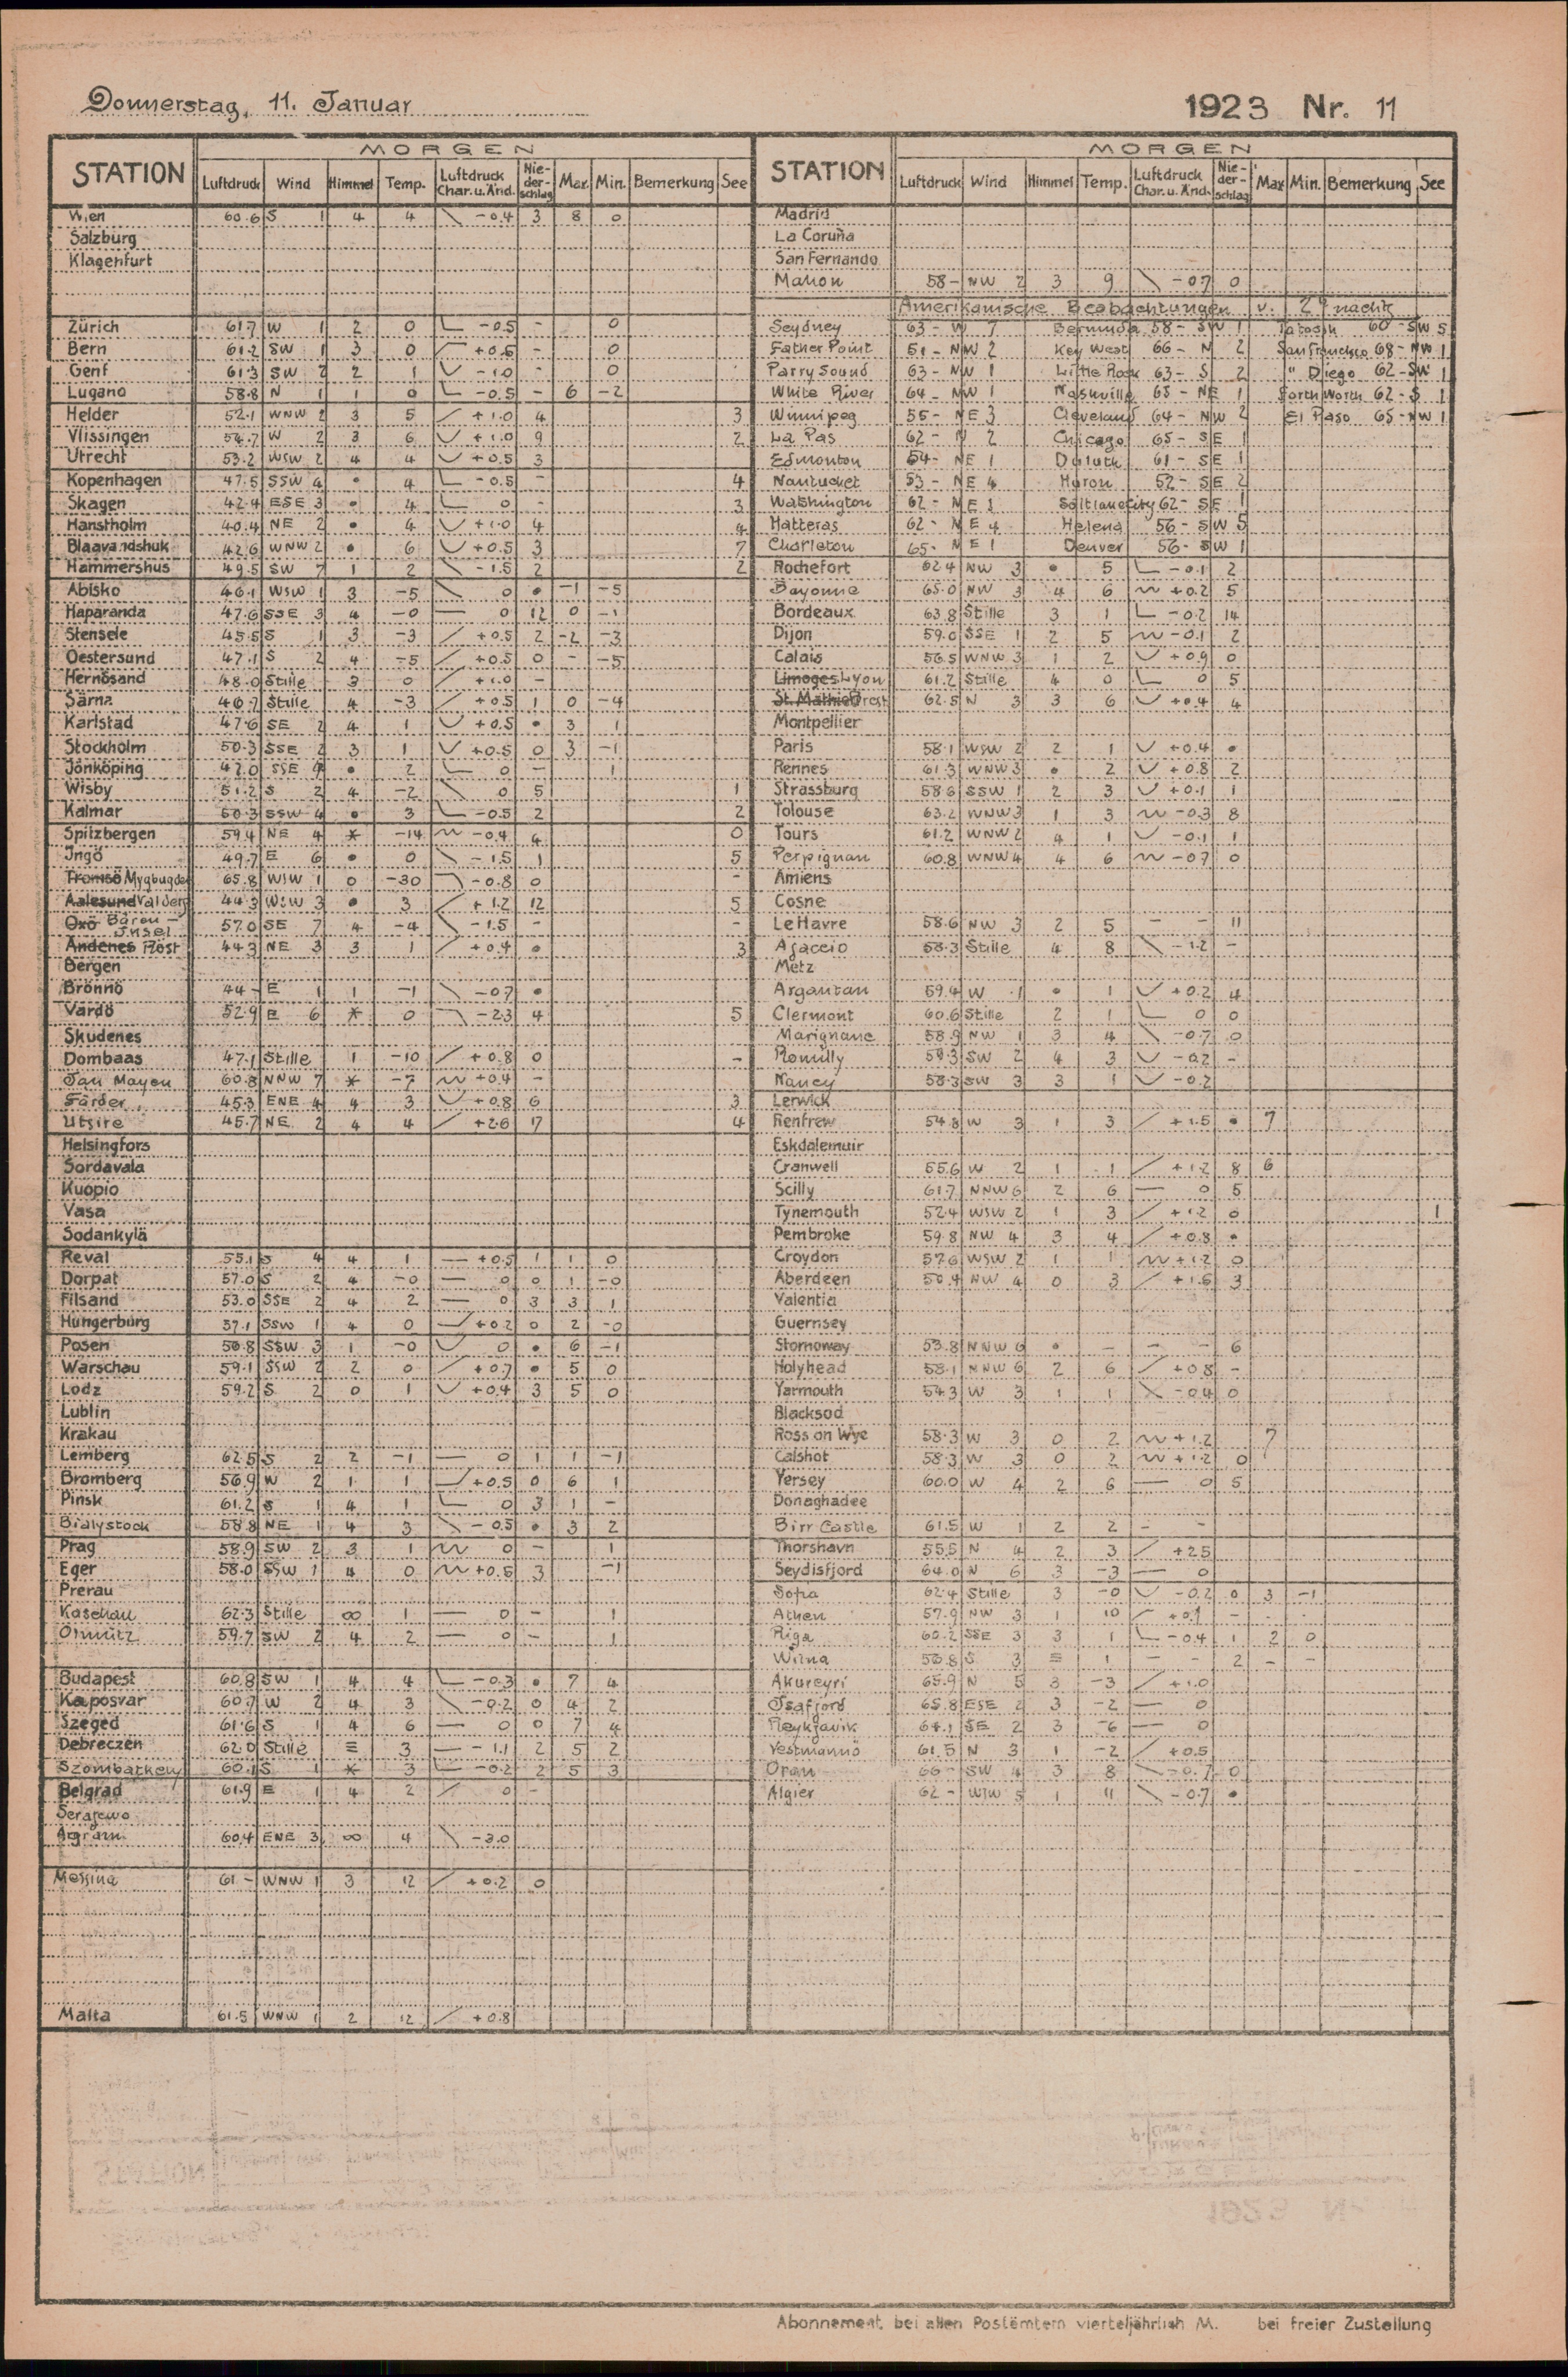 Donnerstag, 11. Januar 1923 Nr. 11
MORGEN MORGEN
STATION Luftdruck Wind Himmel Temp. Luftdruck Char. u. Änd. Nie-der-schlag Max. Min. Bemerkung See STATION Luftdruck Wind Himmel Temp. Luftdruck Char. u. Änd. Nie-der-schlag Max Min. Bemerkung See
Wien 60.6 S 1 4 4 \ -0.4 3 8 0 Madrid
Salzburg La Coruña
Klagenfurt San Fernando
Mahon 58- NW 2 3 9 \ -0.7 0
Amerikanische Beobachtungen v. nachts
Zürich 61.7 W 1 2 0 -0.5 - 0 Seydney 63- W 7 Bermuda 58- SW 1 Tatoosh 60- SW 5
Bern 61.2 SW 1 3 0 +0.5 - 0 Father Point 51- NW 2 Key West 66- N 2 San Francisco 68- NW 1
Genf 61.3 SW 2 2 1 -1.0 - 0 Parry Sound 63- NW 1 Little Rock 63- S 2 " Diego 62- SW 1
Lugano 58.8 N 1 1 0 -0.5 - 6 -2 White River 64- NW 1 Nashville 65- NE 1 Forth Worth 62- S 1
Helder 52.1 WNW 2 3 5 / +1.0 4 3 Winnipeg 55- NE 3 Cleveland 64- NW 2 El Paso 65- NW 1
Vlissingen 54.7 W 2 3 6 +1.0 9 2 La Pas 62- N 2 Chicago 65- SE 1
Utrecht 53.2 WSW 2 4 4 +0.5 3 Edmonton 54- NE 1 Duluth 61- SE 1
Kopenhagen 47.5 SSW 4 • 4 -0.5 - 4 Nantucket 53- NE 4 Huron 52- SE 2
Skagen 42.4 ESE 3 • 4 0 - 3 Washington 62- NE 1 Saltlakecity 62- SE 1
Hanstholm 40.4 NE 2 • 4 +1.0 4 4 Hatteras 62- NE 4 Helena 56- SW 5
Blaavandshuk 42.6 WNW 2 • 6 +0.5 3 7 Charleton 65- NE 1 Denver 56- SW 1
Hammershus 49.5 SW 7 1 2 \ -1.5 2 2 Rochefort 62.4 NW 3 • 5 -0.1 2
Abisko 46.1 WSW 1 3 -5 \ 0 • -1 -5 Bayonne 65.0 NW 3 4 6 +0.2 5
Haparanda 47.6 SSE 3 4 -0 — 0 12 0 -1 Bordeaux 63.8 Stille 3 1 -0.2 14
Stensele 45.5 S 1 3 -3 / +0.5 2 -2 -3 Dijon 59.0 SSE 1 2 5 -0.1 2
Oestersund 47.1 S 2 4 -5 / +0.5 0 - -5 Calais 56.5 WNW 3 1 2 +0.9 0
Hernösand 48.0 Stille 3 0 / +1.0 - Limoges Lyon 61.2 Stille 4 0 0 5
Särna 46.7 Stille 4 -3 / +0.5 1 0 -4 St. Mathieu Brest 62.5 N 3 3 6 +0.4 4
Karlstad 47.6 SE 2 4 1 +0.5 • 3 1 Montpellier
Stockholm 50.3 SSE 2 3 1 +0.5 0 3 -1 Paris 58.1 WSW 2 2 1 +0.4 •
Jönköping 47.0 SSE • 2 0 - 1 Rennes 61.3 WNW 3 • 2 +0.8 2
Wisby 51.2 S 2 4 -2 \ 0 5 1 Strassburg 58.6 SSW 1 2 3 +0.1 1
Kalmar 50.3 SSW 4 • 3 -0.5 2 2 Tolouse 63.2 WNW 3 1 3 -0.3 8
Spitzbergen 59.4 NE 4 * -14 -0.4 4 0 Tours 61.2 WNW 2 4 1 -0.1 1
Ingö 49.7 E 6 • 0 \ -1.5 1 5 Perpignan 60.8 WNW 4 4 6 -0.7 0
Tromsö Mygbugden 65.8 WSW 1 0 -30 -0.8 0 - Amiens
Aalesund Valders 44.3 WSW 3 • 3 +1.2 12 5 Cosne
Oxö Bären-Insel 57.0 SE 7 4 -4 \ -1.5 - - Le Havre 58.6 NW 3 2 5 - - 11
Andenes Röst 44.3 NE 3 3 1 / +0.4 • 3 Ajaccio 58.3 Stille 4 8 \ -1.2 -
Bergen Metz
Brönnö 44- E 1 1 -1 \ -0.7 • Argantan 59.4 W 1 • 1 +0.2 4
Vardö 52.9 E 6 * 0 -2.3 4 5 Clermont 60.6 Stille 2 1 0 0
Skudenes Marignane 58.9 NW 1 3 4 \ -0.7 0
Dombaas 47.1 Stille 1 -10 / +0.8 0 - Romilly 59.3 SW 2 4 3 -0.2 -
Jan Mayen 60.8 NNW 7 * -7 +0.4 - Nancy 58.3 SW 3 3 1 -0.2
Färder 45.3 ENE 4 4 3 +0.8 6 3 Lerwick
Utsire 45.7 NE 2 4 4 / +2.6 17 4 Renfrew 54.8 W 3 1 3 / +1.5 • 7
Helsingfors Eskdalemuir
Sordavala Cranwell 55.6 W 2 1 1 / +1.2 8 6
Kuopio Scilly 61.7 NNW 6 2 6 — 0 5
Vasa Tynemouth 52.4 WSW 2 1 3 / +1.2 0 1
Sodankylä Pembroke 59.8 NW 4 3 4 / +0.8 •
Reval 55.1 S 4 4 1 — +0.5 1 1 0 Croydon 57.6 WSW 2 1 1 +1.2 0
Dorpat 57.0 S 2 4 -0 — 0 0 1 -0 Aberdeen 50.4 NW 4 0 3 / +1.6 3
Filsand 53.0 SSE 2 4 2 — 0 3 3 1 Valentia
Hungerburg 57.1 SSW 1 4 0 +0.2 0 2 -0 Guernsey
Posen 56.8 SSW 3 1 -0 0 • 6 -1 Stornoway 53.8 NNW 6 • - - - 6
Warschau 59.1 SSW 2 2 0 / +0.7 • 5 0 Holyhead 58.1 NNW 6 2 6 / +0.8 -
Lodz 59.2 S 2 0 1 +0.4 3 5 0 Yarmouth 54.3 W 3 1 1 \ -0.4 0
Lublin Blacksod
Krakau Ross on Wye 58.3 W 3 0 2 +1.2 7
Lemberg 62.5 S 2 2 -1 — 0 1 1 -1 Calshot 58.3 W 3 0 2 +1.2 0
Bromberg 56.9 W 2 1 1 +0.5 0 6 1 Yersey 60.0 W 4 2 6 — 0 5
Pinsk 61.2 S 1 4 1 0 3 1 - Donaghadee
Bialystock 58.8 NE 1 4 3 \ -0.5 • 3 2 Birr Castle 61.5 W 1 2 2 - -
Prag 58.9 SW 2 3 1 0 - 1 Thorshavn 55.5 N 4 2 3 / +2.5
Eger 58.0 SSW 1 4 0 +0.5 3 -1 Seydisfjord 64.0 N 6 3 -3 — 0
Prerau Sofia 62.4 Stille 3 -0 -0.2 0 3 -1
Kaschau 62.3 Stille ∞ 1 — 0 - 1 Athen 57.9 NW 3 1 10 +0.1 -
Olmütz 59.7 SW 2 4 2 — 0 - 1 Riga 60.2 SSE 3 3 1 -0.4 1 2 0
Wilna 58.8 S 3 ≡ 1 - - 2 - -
Budapest 60.8 SW 1 4 4 -0.3 • 7 4 Akureyri 65.9 N 5 3 -3 / +1.0
Kaposvar 60.7 W 2 4 3 \ -0.2 0 4 2 Isafjord 65.8 ESE 2 3 -2 — 0
Szeged 61.6 S 1 4 6 — 0 0 7 4 Reykjavik 64.1 SE 2 3 -6 — 0
Debreczen 62.0 Stille ≡ 3 — -1.1 2 5 2 Vestmannö 61.5 N 3 1 -2 / +0.5
Szombathely 60.1 S 1 * 3 -0.2 2 5 3 Oran 66- SW 4 3 8 \ -0.7 0
Belgrad 61.9 E 1 4 2 / 0 - Algier 62- WSW 5 1 11 \ -0.7 •
Serajewo
Agram 60.4 ENE 3 ∞ 4 \ -3.0
Messina 61- WNW 1 3 12 / +0.2 0
Malta 61.5 WNW 1 2 12 / +0.8
Abonnement bei allen Postämtern vierteljährlich M. bei freier Zustellung